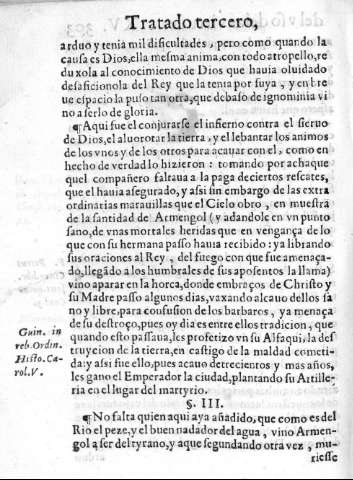 Tratado tercero,
arduo y tenia mil dificultades, pero como quando la
causa es Dios, ella mesma anima, con todo atropello, re
duxola al conocimiento de Dios que hauia oluidado
desaficionola del Rey que la tenia por suya, y en bre
ue espacio la puso tan otra, que debaxo de ignominia vi
no a serlo de gloria.
¶Aqui fue el conjurarse el infierno contra el sieruo
de Dios, el aluorotar la tierra, y el lebantar los animos
de los vnos y de los otros para acauar con el, como en
hecho de verdad lo hizieron: tomando por achaque
quel compañero faltaua a la paga de ciertos rescates,
que el hauia asegurado, y assi sin embargo de las extra
ordinarias marauillas que el Cielo obro, en muestra
de la santidad de Armengol (y adandole en vn punto
sano, de vnas mortales heridas que en vengança de lo
que con su hermana passo hauia recibido: ya librando
sus oraciones al Rey, del fuego con que fue amenaça-
do, llegãdo a los humbrales de sus aposentos la llama)
vino aparar en la horca, donde embraços de Christo y
su Madre passo algunos dias, vaxando al cauo dellos sa
no y libre, para confusion de los barbaros, ya menaça
de su destroço, pues oy dia es entre ellos tradicion, que
quando esto passaua, les profetizo vn su Alfaqui, la des
truycion de la tierra, en castigo de la maldad cometi-
da: y assi fue ello, pues acauo de trecientos y mas años,
les gano el Emperador la ciudad, plantando su Artille-
ria en el lugar del martyrio.
Guin. in
reb. Ordin.
Histo. Ca-
rol. V.
§. III.
¶No falta quien aqui aya añadido, que como es del
Rio el peze, y el buen nadador del agua, vino Armen-
gol a ser del tyrano, y a que segundando otra vez, mu-
riesse